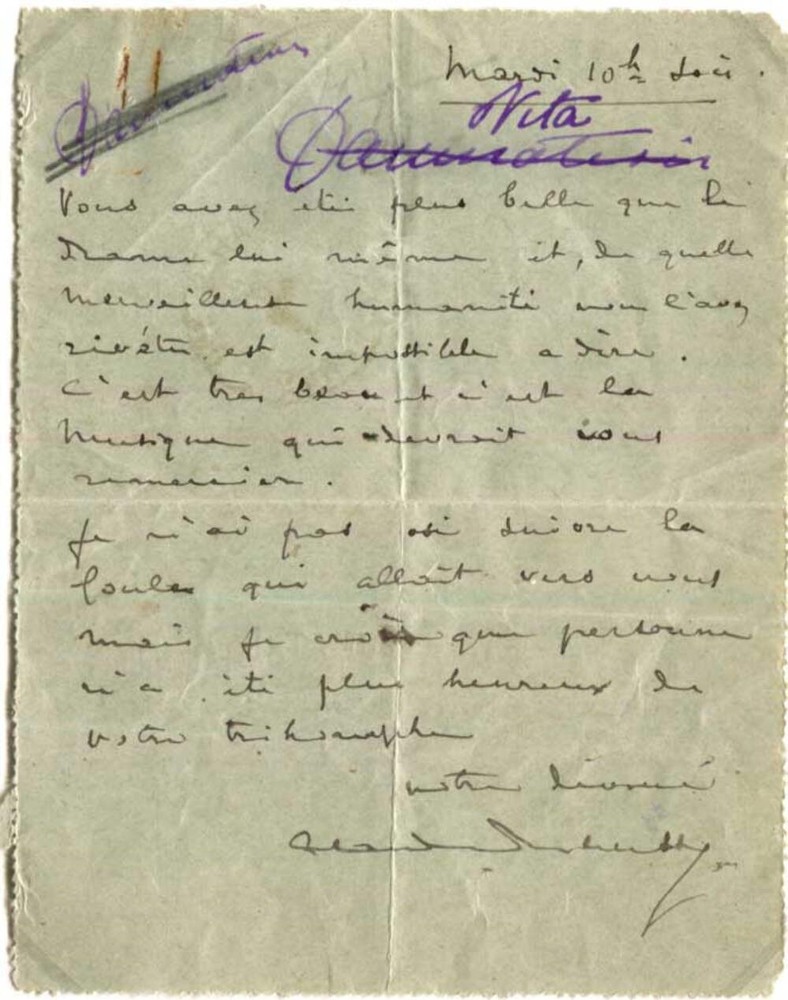 Damnation
Mardi 10h soir.
Vita
Damnation
Vous avez été plus belle que le
drame lui même et, de quelle
merveilleuse humanité vous l'avez
revétu est impossible a dire.
C'est tres beau et c'est la
musique qui devrait vous
remercier.
Je n'ai pas osé suivre la
foule qui allait vers vous
mais je crois que personne
n'a été plus heureux de
votre trihomphe
votre dévoué
Claude Debussy